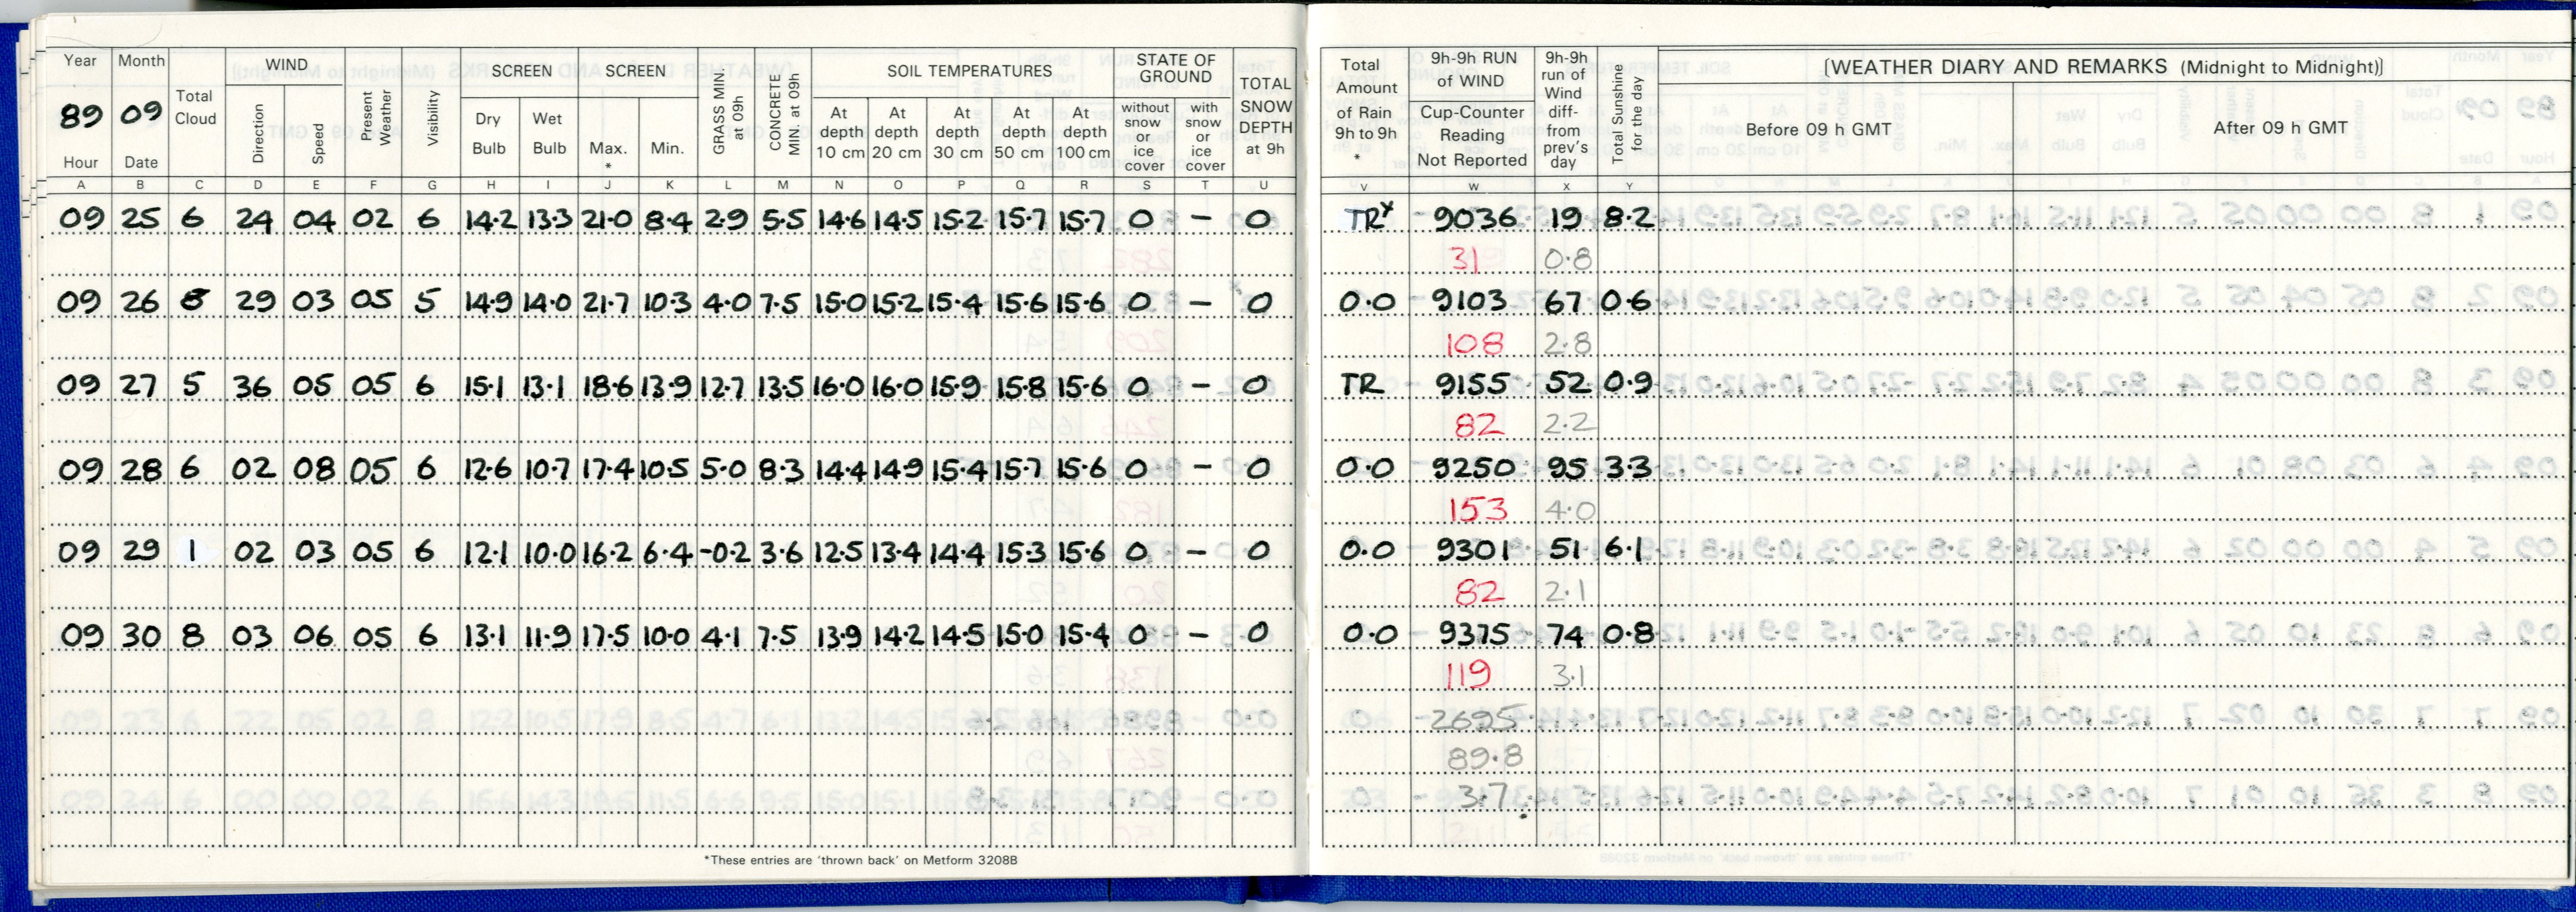 Year Month WIND SCREEN SCREEN SOIL TEMPERATURES STATE OF GROUND
89 09 Total Cloud Direction Speed Present Weather Visibility Dry Bulb Wet Bulb Max. * Min. GRASS MIN. at 09h CONCRETE MIN. at 09h At depth 10 cm At depth 20 cm At depth 30 cm At depth 50 cm At depth 100 cm without snow or ice cover with snow or ice cover TOTAL SNOW DEPTH at 9h
Hour Date
A B C D E F G H I J K L M N O P Q R S T U
09 25 6 24 04 02 6 14.2 13.3 21.0 8.4 2.9 5.5 14.6 14.5 15.2 15.7 15.7 0 – 0
09 26 8 29 03 05 5 14.9 14.0 21.7 10.3 4.0 7.5 15.0 15.2 15.4 15.6 15.6 0 – 0
09 27 5 36 05 05 6 15.1 13.1 18.6 13.9 12.7 13.5 16.0 16.0 15.9 15.8 15.6 0 – 0
09 28 6 02 08 05 6 12.6 10.7 17.4 10.5 5.0 8.3 14.4 14.9 15.4 15.7 15.6 0 – 0
09 29 1 02 03 05 6 12.1 10.0 16.2 6.4 -0.2 3.6 12.5 13.4 14.4 15.3 15.6 0 – 0
09 30 8 03 06 05 6 13.1 11.9 17.5 10.0 4.1 7.5 13.9 14.2 14.5 15.0 15.4 0 – 0
*These entries are 'thrown back' on Metform 3208B
Total Amount of Rain 9h to 9h * 9h-9h RUN of WIND Cup-Counter Reading Not Reported 9h-9h run of Wind diff- from prev's day Total Sunshine for the day [WEATHER DIARY AND REMARKS (Midnight to Midnight)]
Before 09 h GMT After 09 h GMT
V W X Y
TRx 9036 19 8.2
31 0.8
0.0 9103 67 0.6
108 2.8
TR 9155 52 0.9
82 2.2
0.0 9250 95 3.3
153 4.0
0.0 9301 51 6.1
82 2.1
0.0 9375 74 0.8
119 3.1
2695
89.8
3.7